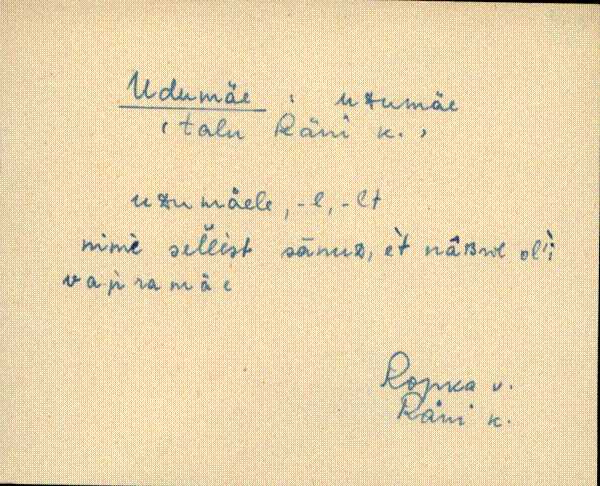 Udumäe : uzumäe
‹ talu Räni k. ›
uzumäele, -l, -lt
nime sellest sänuz,
vapramäe
Ropka v.
Räni k.